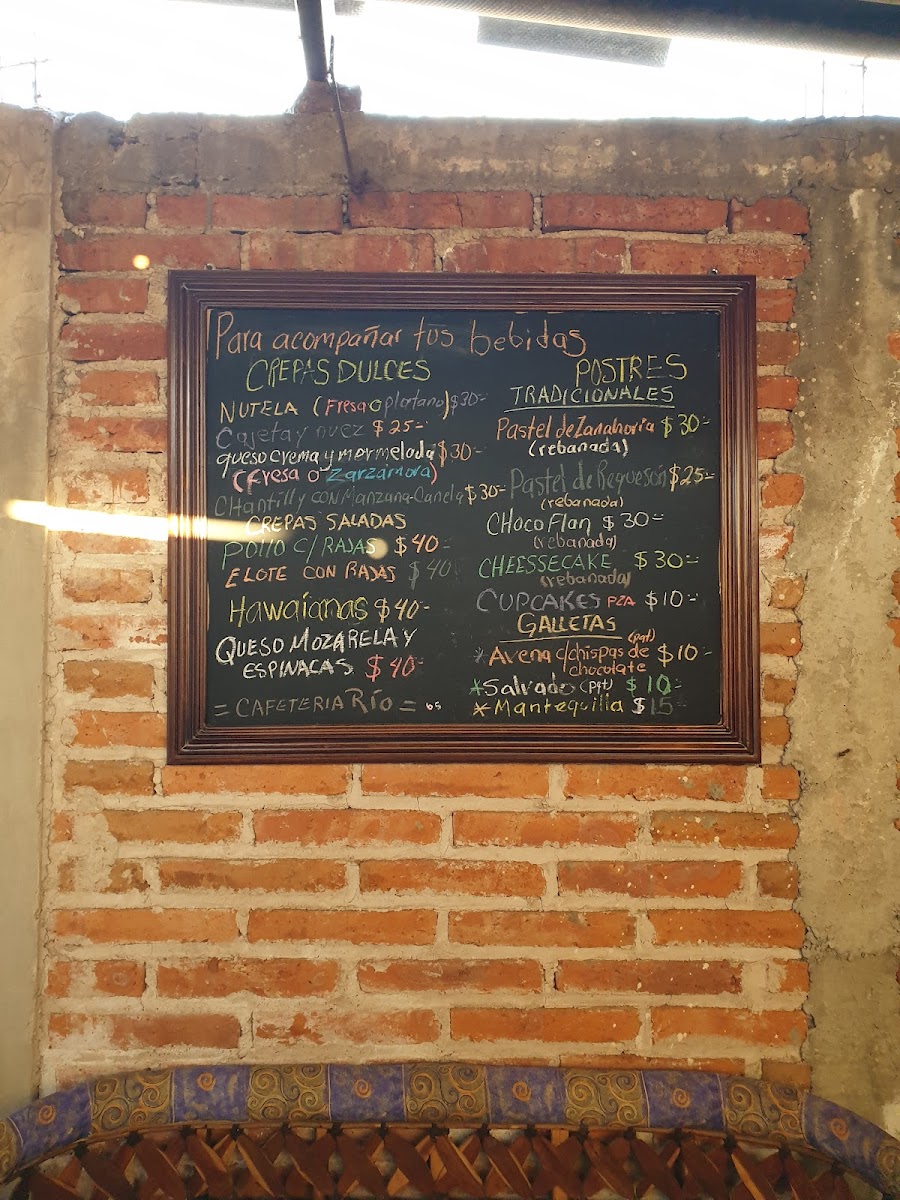 Para acompañar tus bebidas
CREPAS DULCES
NUTELA (Fresa o platano) $30-
Cajeta y nuez $25-
queso crema y mermelada $30-
(Fresa o Zarzamora)
CHantilly con Manzana-Canela $30-
CREPAS SALADAS
POLLO C/ RAJAS $40-
ELOTE CON RAJAS $40
Hawaianas $40-
QUESO MOZARELA Y
ESPINACAS $40-
= CAFETERIA RÍO =
POSTRES
TRADICIONALES
Pastel de Zanahoria $30-
(rebanada)
Pastel de Requesón $25-
(rebanada)
CHOCO Flan $30-
(rebanada)
CHEESSECAKE $30-
(rebanada)
CUPCAKES PZA $10-
GALLETAS
(pqt)
*Avena c/chispas de $10-
chocolate
*Salvado (pqt) $10-
*Mantequilla $15-